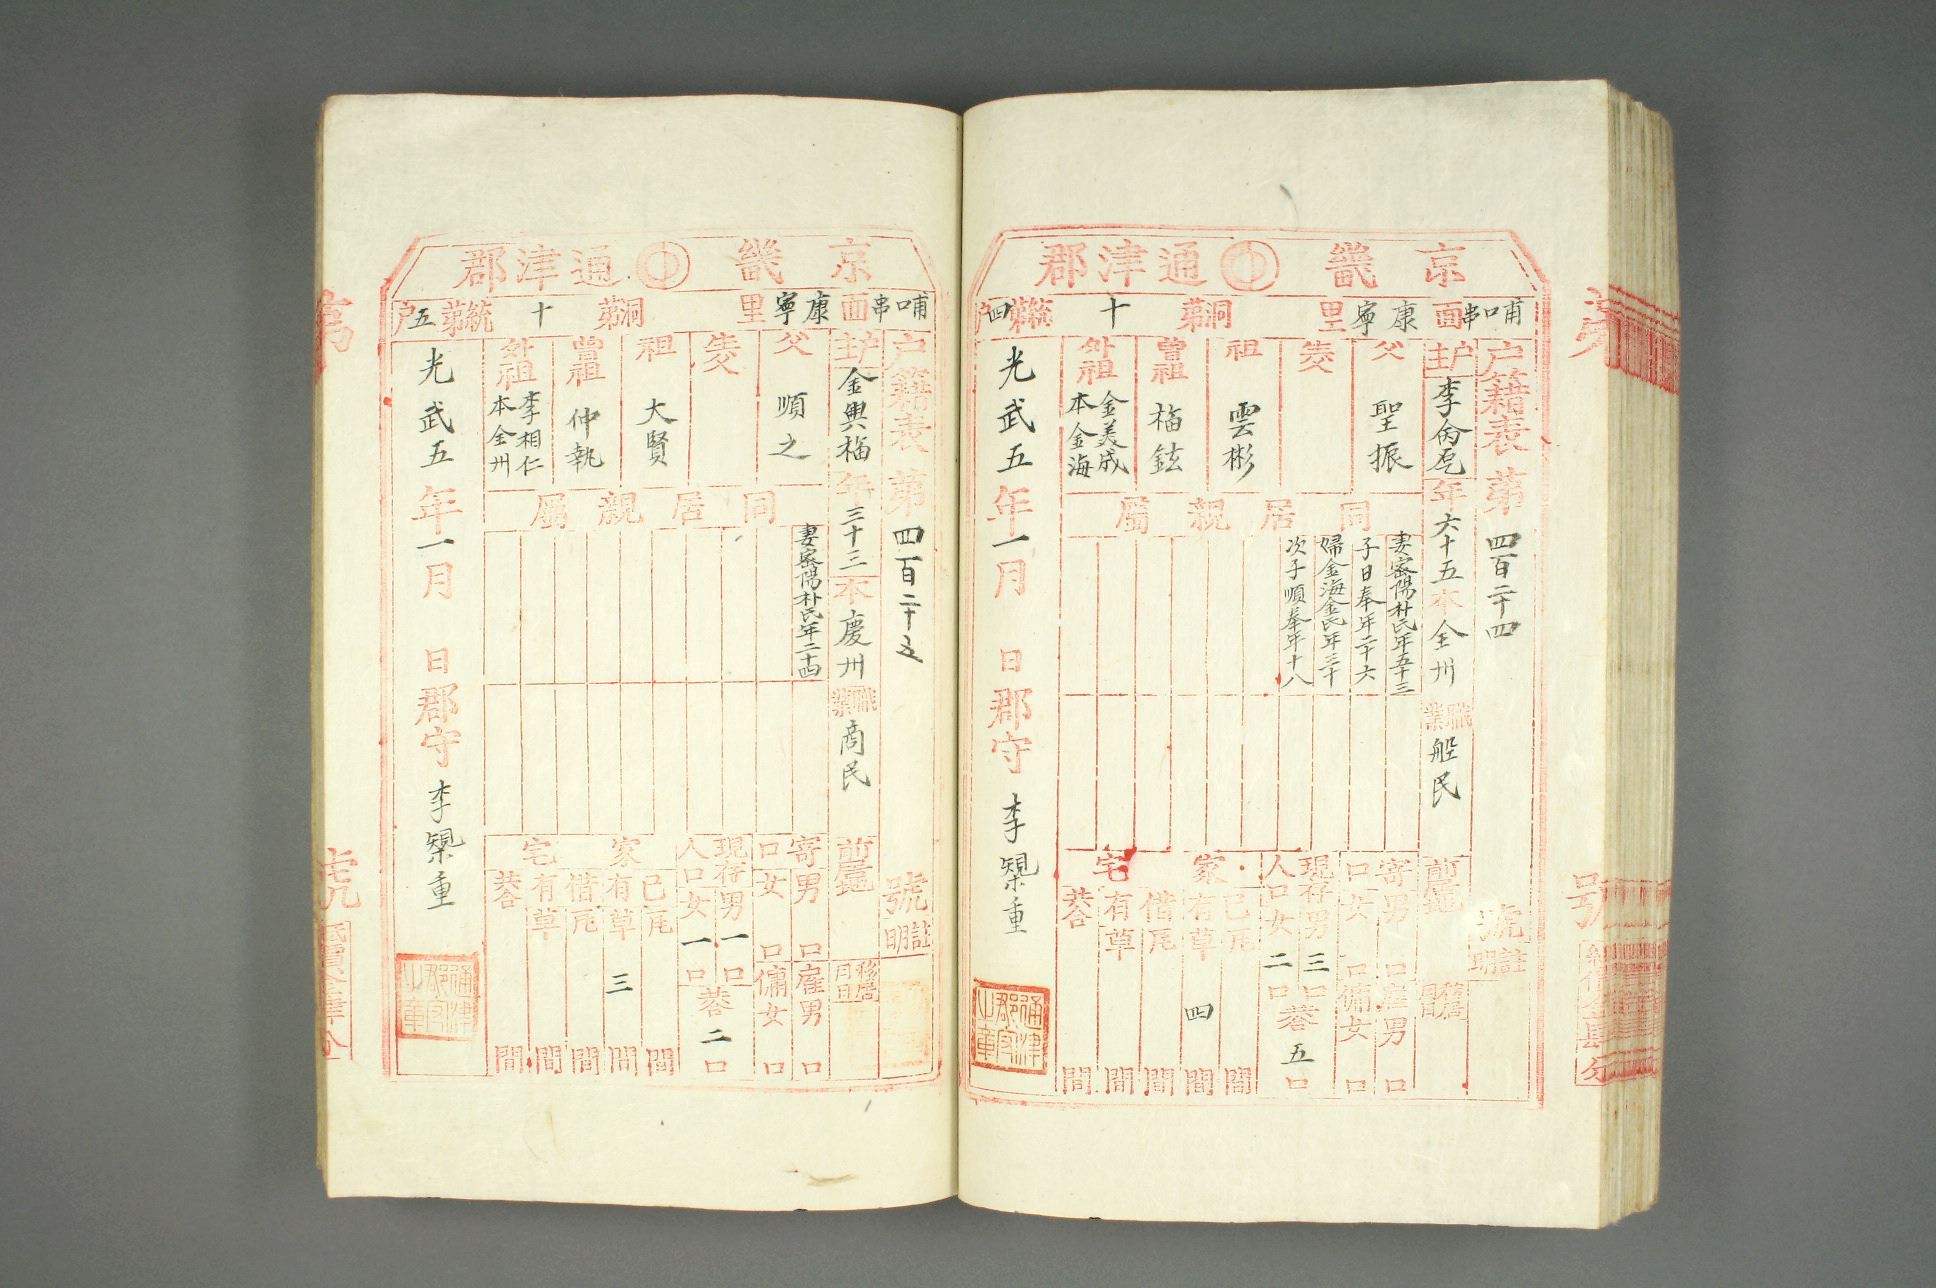 京畿 通津郡
哺串面 康寧里 洞 第十統 第四戶
戶籍表 第 四百二十四 號 註明
戶主 李㑂瓱 年 六十五 本 全州 職業 船民 前居 移居 月 日
父 聖振
生父
祖 雲彬
曾祖 福鉉
外祖 金美成 本金海
同居親屬
妻密陽朴氏年五十三
子日奉年二十六
婦金海金氏年三十
次子順奉年十八
寄口 男 口 女 口
雇男 口 傭女 口
現存人口 男 三口 女 二口 共合 五 口
家宅
己有 瓦 間 草 四 間
借有 瓦 間 草 間
共合 間
光武五年一月 日 郡守 李
通津郡守之章
京畿 通津郡
哺串面 康寧里 洞 第十統 第五戶
戶籍表 第 四百二十五 號 註明
戶主 金興福 年 三十三 本 慶州 職業 商民 前居 移居 月 日
父 順之
生父
祖 大賢
曾祖 仲執
外祖 李相仁 本全州
同居親屬
妻密陽朴氏年二十四
寄口 男 口 女 口
雇男 口 傭女 口
現存人口 男 一口 女 一口 共合 二 口
家宅
己有 瓦 間 草 三 間
借有 瓦 間 草 間
共合 間
光武五年一月 日 郡守 李
通津郡守之章